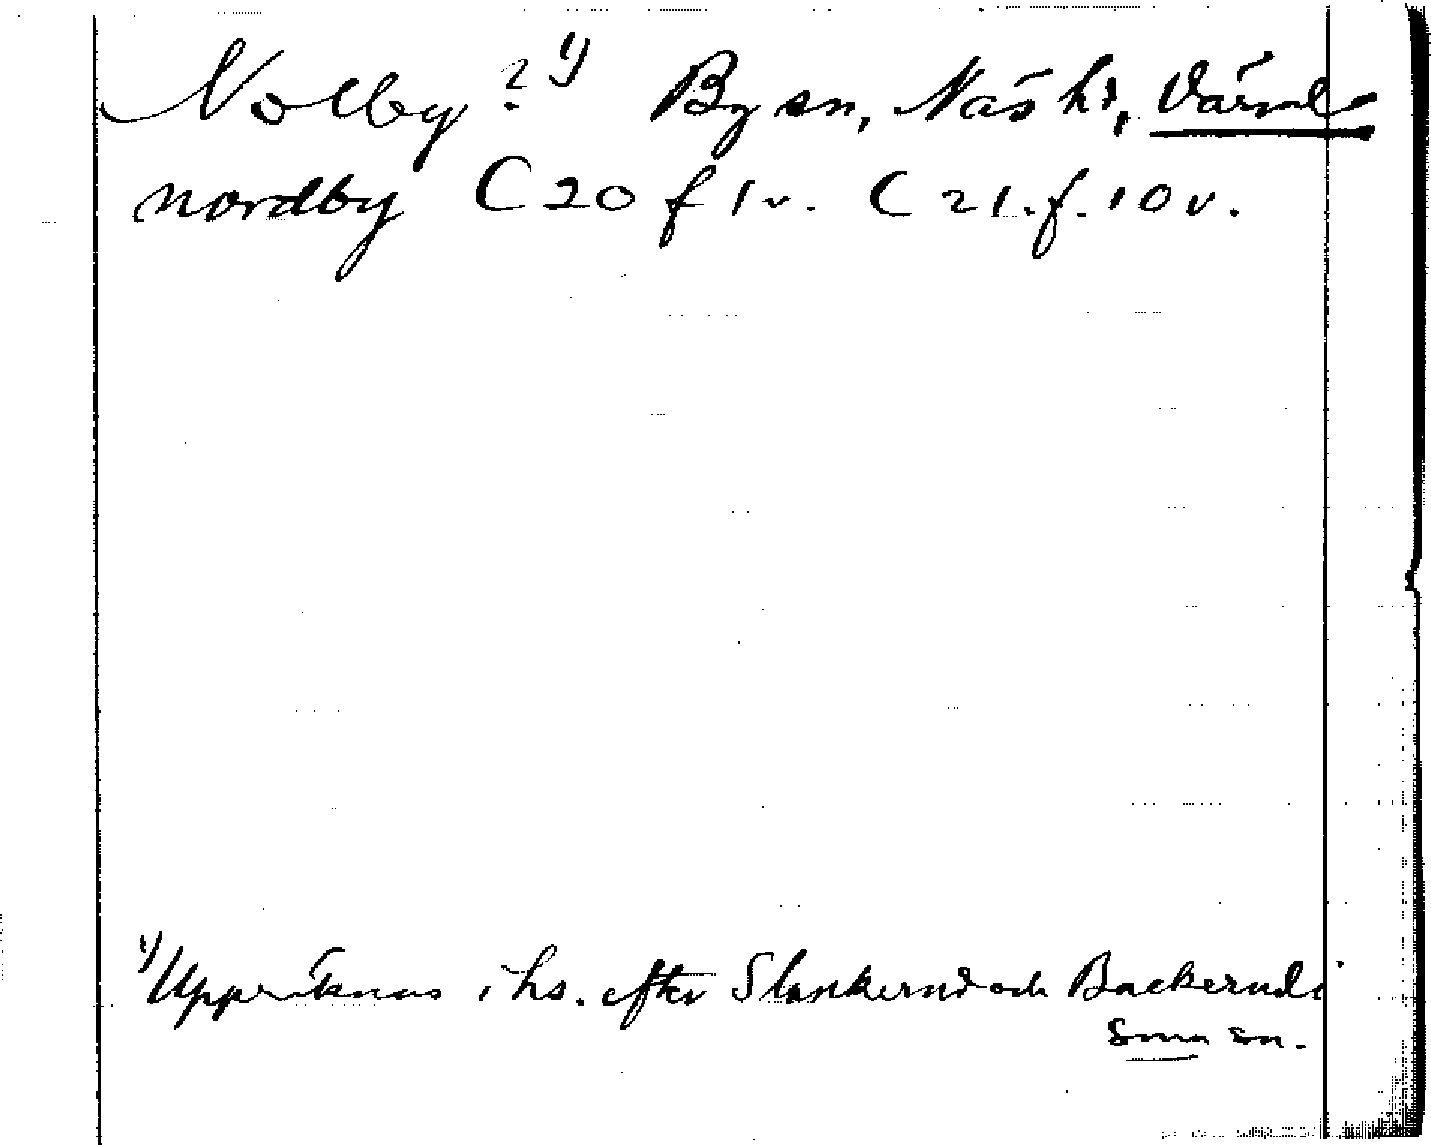 Nolby ? 1) By sn, Näs hd, Värml
nordby C 20 f 1 v. C 21. f. 10 v.
1) Uppräknas i hs. efter Slankerud och Backerud i
samma sn.